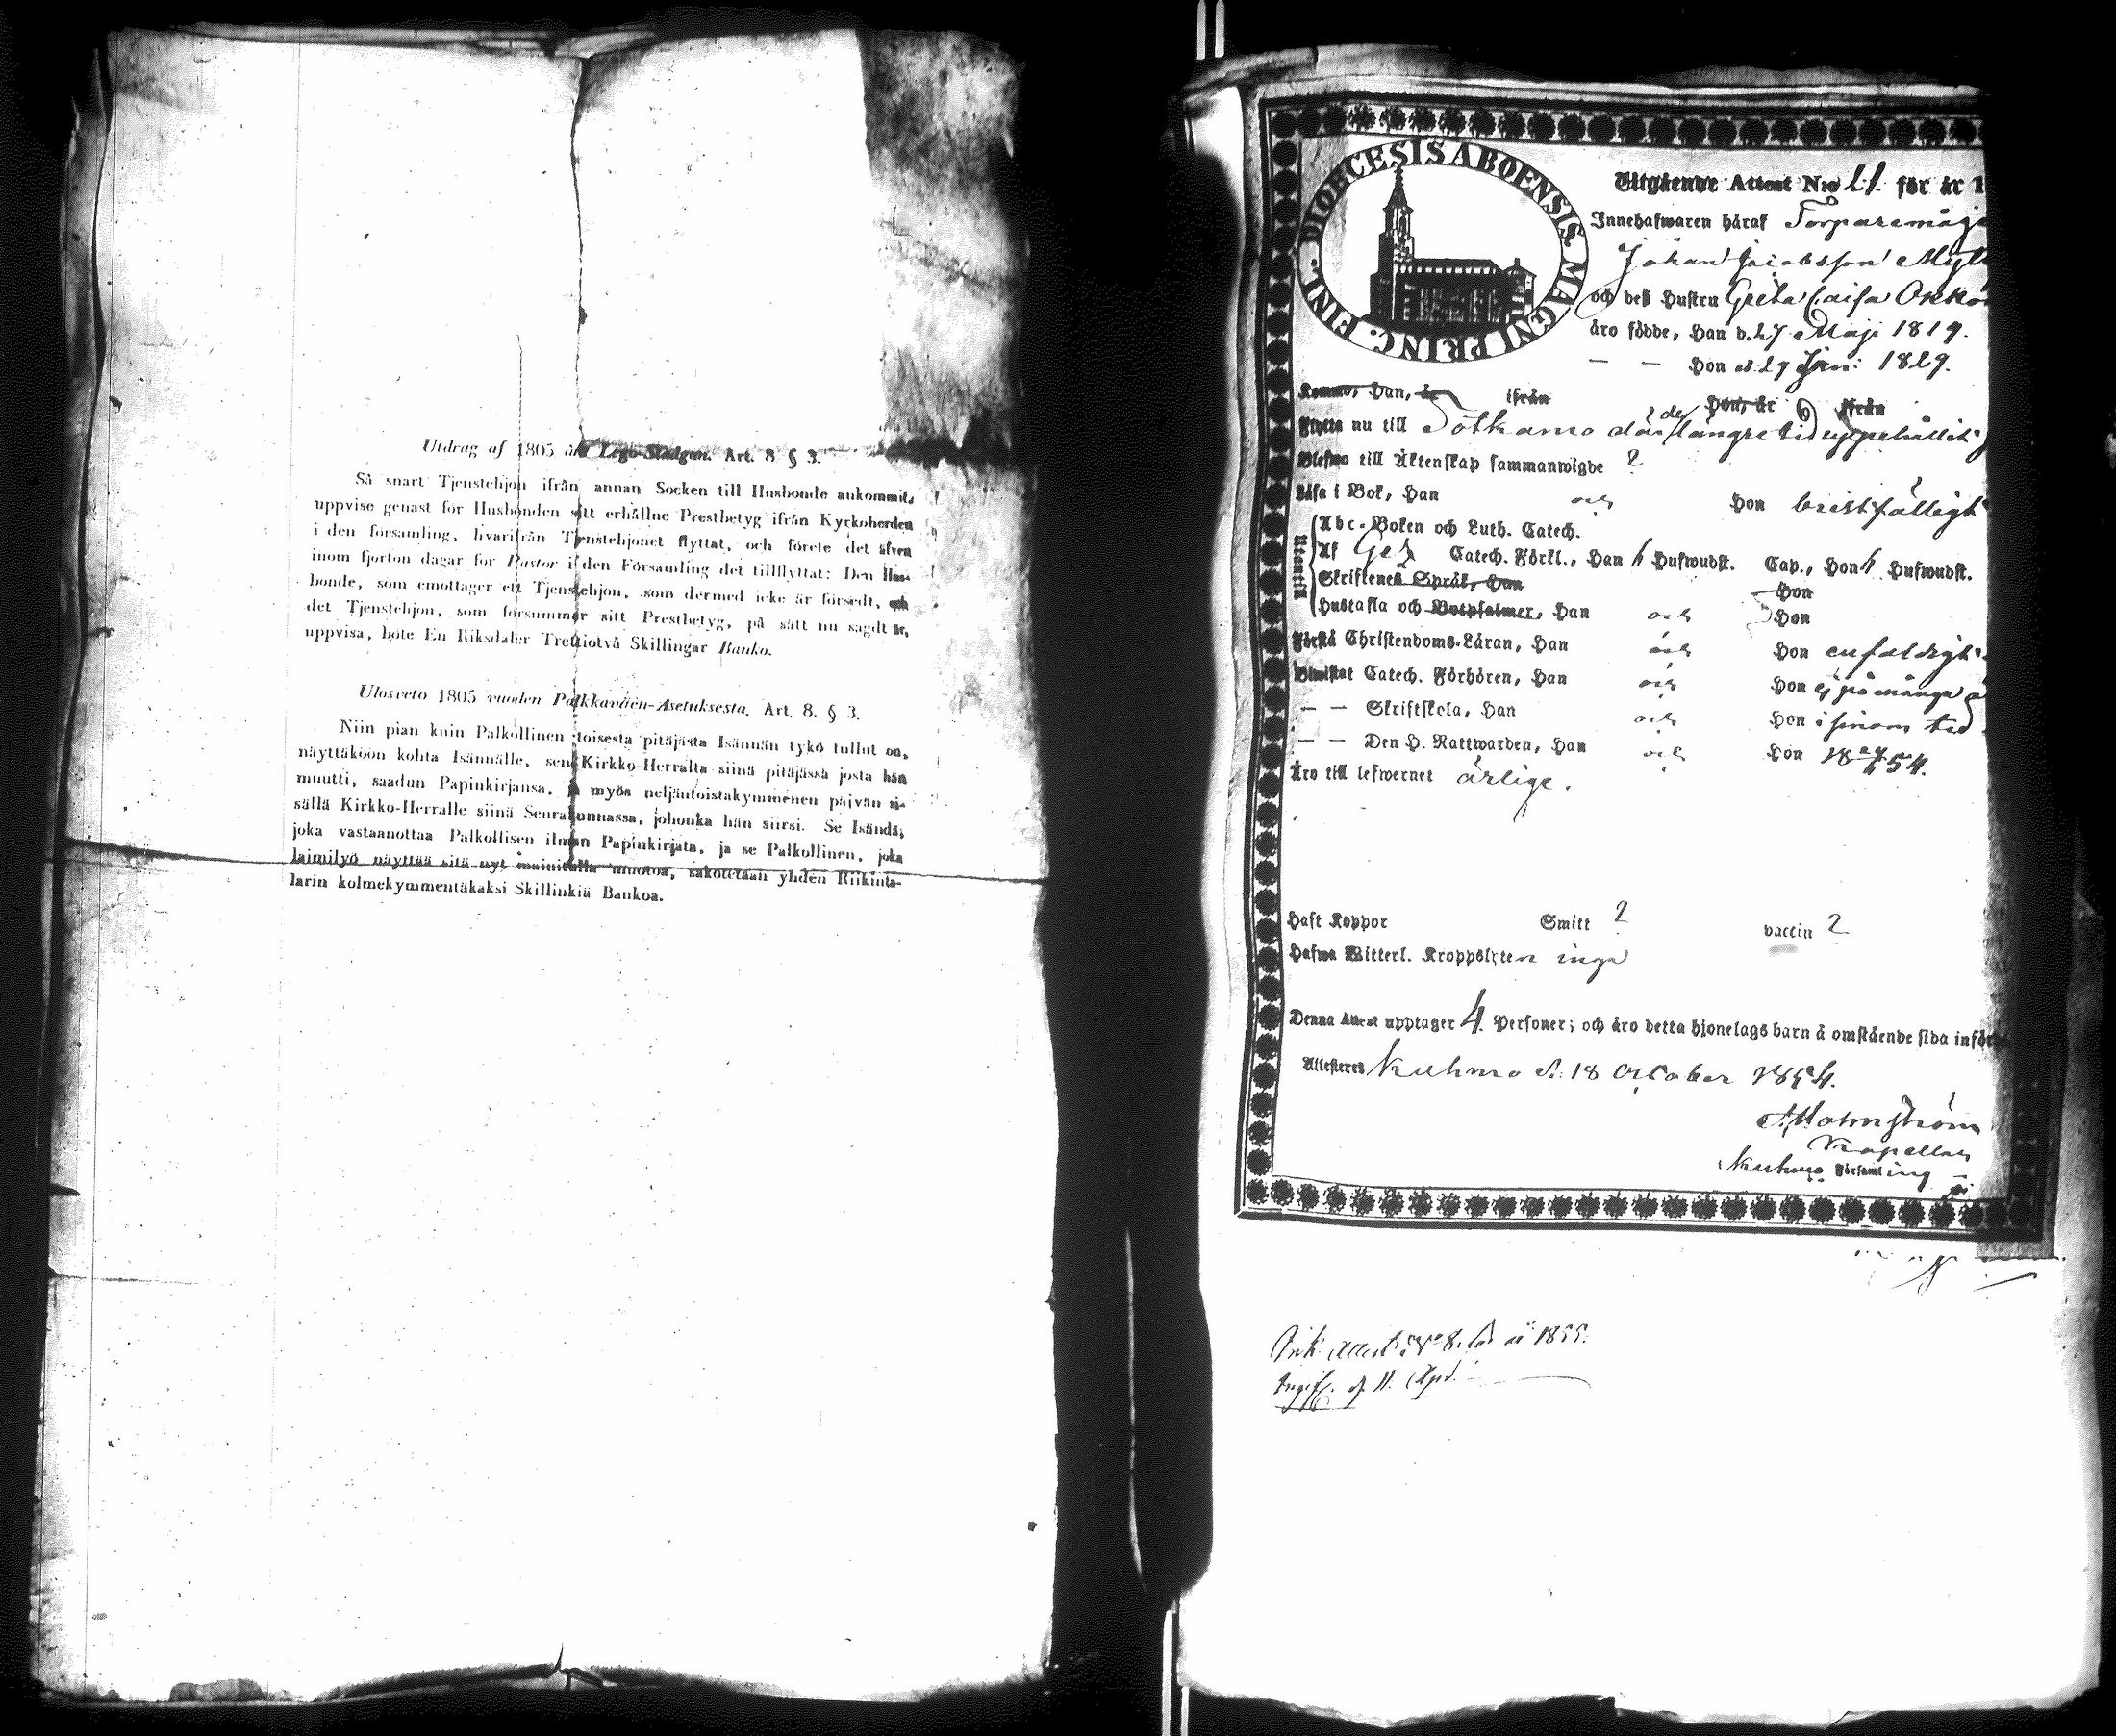 Utdrag af 1805 års Lego-Stadgan. Art. 8 § 3.
Så snart Tjenstehjon ifrån annan Socken till Husbonde ankommit,
uppvise genast för Husbonden sitt erhållne Prestbetyg ifrån Kyrkoherden
i den församling, hvarifrån Tjenstehjonet flyttat, och förete det äfven
inom fjorton dagar för Pastor i den Församling det tillflyttat: Den Hus-
bonde, som emottager ett Tjenstehjon, som dermed icke är försedt, och
det Tjenstehjon, som försummar sitt Prestbetyg, på sätt nu sagdt är,
uppvisa, böte En Riksdaler Trettiotvå Skillingar Banko.
Ulosveto 1805 vuoden Palkkaväen-Asetuksesta. Art. 8. § 3.
Niin pian kuin Palkollinen toisesta pitäjästa Isännän tykö tullut on,
näyttäköön kohta Isännälle, sen Kirkko-Herralta siinä pitäjässä josta hän
muutti, saadun Papinkirjansa, ja myös neljäntoistakymmenen päivän si-
sällä Kirkko-Herralle siinä Seurakunnassa, johonka hän siirsi. Se Isändä,
joka vastaanottaa Palkollisen ilman Papinkirjata, ja se Palkollinen, joka
laimilyö näyttää sitä nyt mainitulla muotoa, sakotetaan yhden Riikinta-
larin kolmekymmentäkaksi Skillinkiä Bankoa.
DIOECESIS ABOENSIS. MAGNI PRINC. FINL.
Utgående Attest N:ro 21 för år 1
Innehafwaren häraf Torparemåg
Johan Jacobsson
och deß Hustru Greta Caisa
äro födde, Han d. 27 Maji 1819.
— — Hon d. 29 Jan: 1829.
Kommo, Han, år ifrån Hon, år ifrån
Flytta nu till Sotkamo där de längre tid uppehållit
Blefwo till Äktenskap sammanwigde ?
Läsa i Bok, Han och Hon bristfälligt
Utantill
Abc-Boken och Luth. Catech.
Af Catech. Förkl., Han Hufwudst. Cap., Hon Hufwudst.
Skriftenes Språk, Han Hon
Hustafla och Botpsalmer, Han och Hon
Förstå Christendoms-Läran, Han och Hon enfaldigt.
Biwistat Catech. Förhören, Han och Hon ej på många
— — Skriftskola, Han och Hon i sinom tid
— — Den H. Nattwarden, Han och Hon 54.
Äro till lefwernet ärlige.
Haft Koppor Smitt ? vaccin ?
Hafwa Witterl. Kroppslyten inga
Denna Attest upptager 4. Personer; och äro detta hjonelags barn å omstående sida införde
Attesteres Kuhmo d. 18 October 1854.
Kapellan
Kuhmo Församling
Ink: Attest N:o 8. för år 1855.